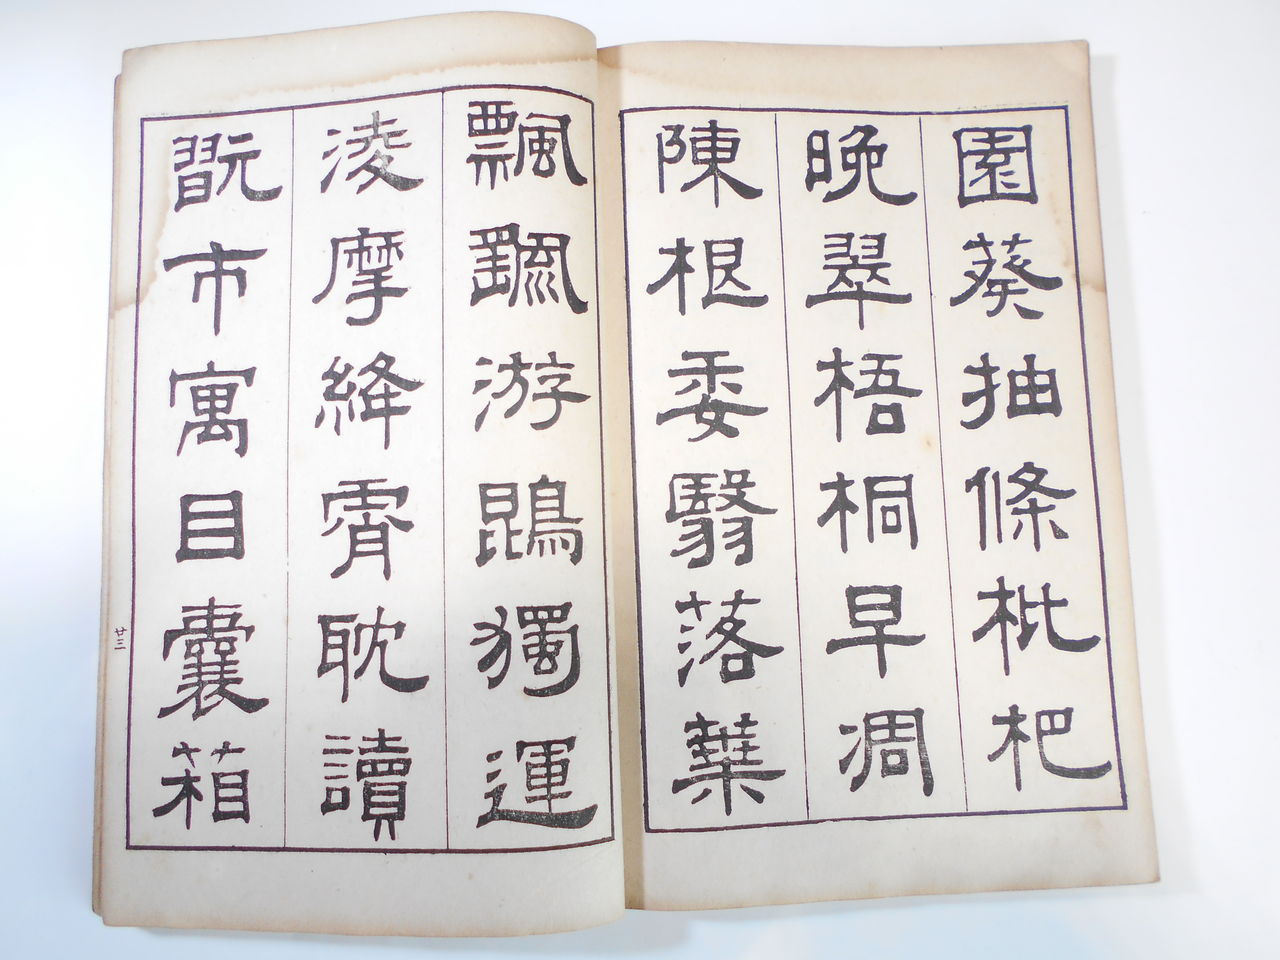 園葵抽條枇杷
晚翠梧桐早凋
陳根委翳落葉
飄颻游鵾獨運
淩摩絳霄耽讀
翫市寓目囊箱
廿三